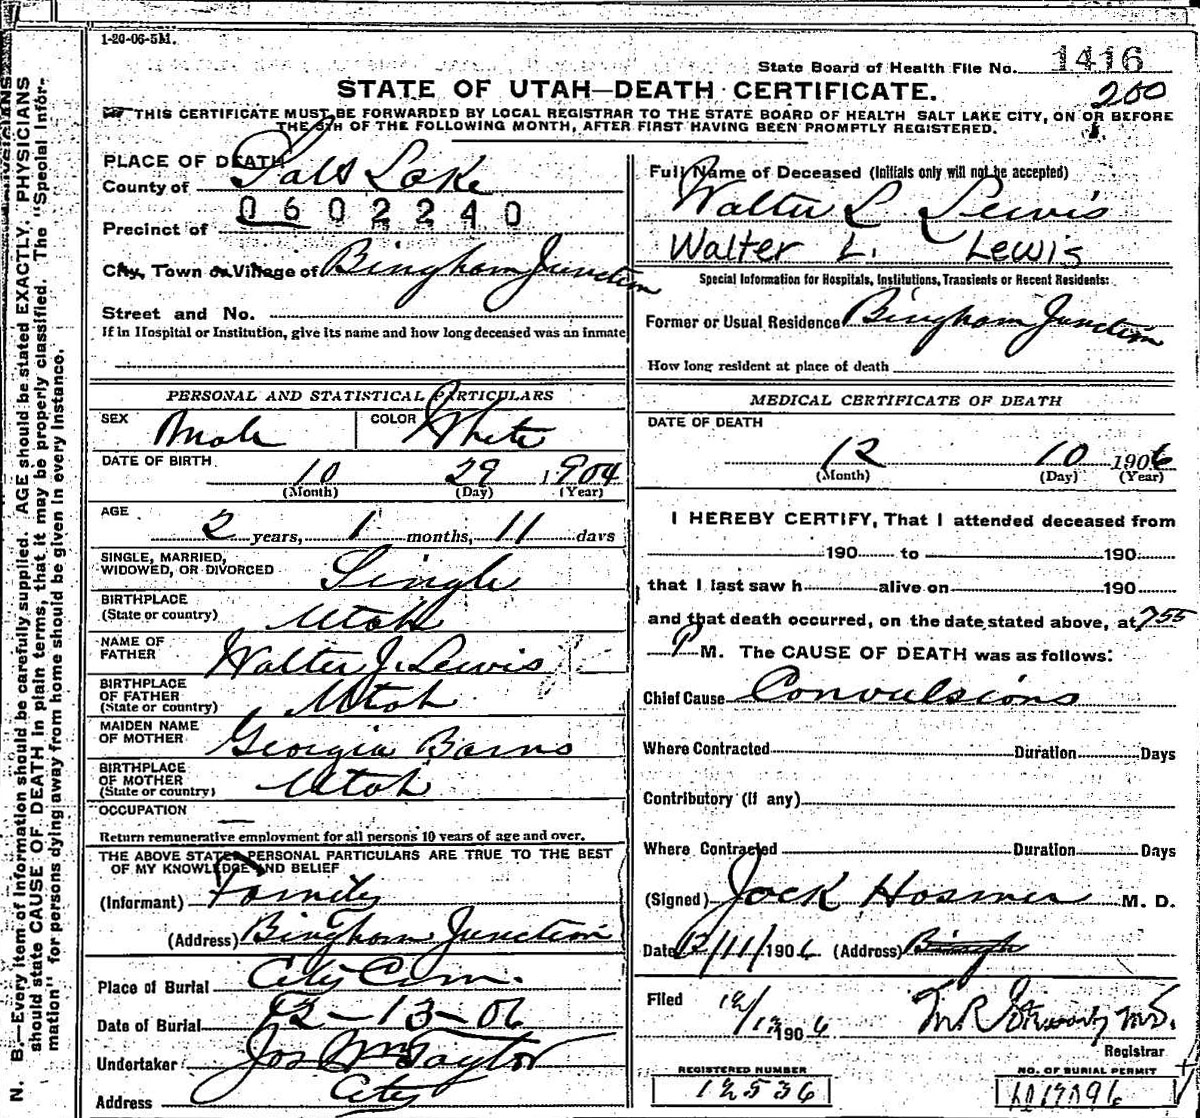 1-20-06-5M.
State Board of Health File No. 1416
STATE OF UTAH—DEATH CERTIFICATE.
200
THIS CERTIFICATE MUST BE FORWARDED BY LOCAL REGISTRAR TO THE STATE BOARD OF HEALTH SALT LAKE CITY, ON OR BEFORE
THE 5TH OF THE FOLLOWING MONTH, AFTER FIRST HAVING BEEN PROMPTLY REGISTERED.
PLACE OF DEATH
County of Salt Lake
0602240
Precinct of
City, Town or Village of Bingham Junction
Street and No.
If in Hospital or Institution, give its name and how long deceased was an inmate
PERSONAL AND STATISTICAL PARTICULARS
SEX Male COLOR White
DATE OF BIRTH 10 29 1904
(Month) (Day) (Year)
AGE
2 years, 1 months, 11 days
SINGLE, MARRIED,
WIDOWED, OR DIVORCED Single
BIRTHPLACE
(State or country) Utah
NAME OF
FATHER Walter J. Lewis
BIRTHPLACE
OF FATHER
(State or country) Utah
MAIDEN NAME
OF MOTHER Georgia Barns
BIRTHPLACE
OF MOTHER
(State or country) Utah
OCCUPATION —
Return remunerative employment for all persons 10 years of age and over.
THE ABOVE STATED PERSONAL PARTICULARS ARE TRUE TO THE BEST
OF MY KNOWLEDGE AND BELIEF
(Informant) Family
(Address) Bingham Junction
Place of Burial City Cem.
Date of Burial 12-13-06
Undertaker Jos Wm Taylor
Address City
Full Name of Deceased (Initials only will not be accepted)
Walter L Lewis
Walter L. Lewis
Special Information for Hospitals, Institutions, Transients or Recent Residents:
Former or Usual Residence Bingham Junction
How long resident at place of death
MEDICAL CERTIFICATE OF DEATH
DATE OF DEATH
12 10 1906
(Month) (Day) (Year)
I HEREBY CERTIFY, That I attended deceased from
190 to 190
that I last saw h alive on 190
and that death occurred, on the date stated above, at 755
P M. The CAUSE OF DEATH was as follows:
Chief Cause Convulsions
Where Contracted Duration Days
Contributory (if any)
Where Contracted Duration Days
(Signed) Jock Hosmer M. D.
Date 12/11/1906 (Address)
Filed 12/12 1906 M.D.
Registrar
REGISTERED NUMBER
12536
NO. OF BURIAL PERMIT
N. B.—Every item of information should be carefully supplied. AGE should be stated EXACTLY. PHYSICIANS
should state CAUSE OF DEATH in plain terms, that it may be properly classified. The "Special Infor-
mation" for persons dying away from home should be given in every instance.